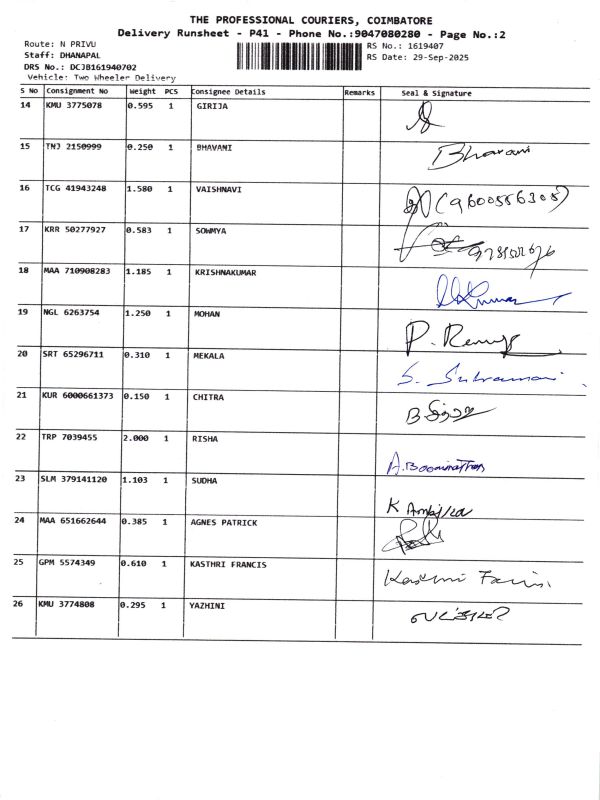 THE PROFESSIONAL COURIERS, COIMBATORE
Delivery Runsheet - P41 - Phone No.:9047080280 - Page No.:2
Route: N PRIVU RS No.: 1619407
Staff: DHANAPAL RS Date: 29-Sep-2025
DRS No.: DCJB161940702
Vehicle: Two Wheeler Delivery
S No Consignment No Weight PCS Consignee Details Remarks Seal & Signature
14 KMU 3775078 0.595 1 GIRIJA
15 TNJ 2150999 0.250 1 BHAVANI Bhavani
16 TCG 41943248 1.580 1 VAISHNAVI (9600556308)
17 KRR 50277927 0.583 1 SOWMYA
18 MAA 710908283 1.185 1 KRISHNAKUMAR
19 NGL 6263754 1.250 1 MOHAN P.
20 SRT 65296711 0.310 1 MEKALA S.
21 KUR 6000661373 0.150 1 CHITRA
22 TRP 7039455 2.000 1 RISHA A.Boominathan
23 SLM 379141120 1.103 1 SUDHA K Ambika
24 MAA 651662644 0.385 1 AGNES PATRICK
25 GPM 5574349 0.610 1 KASTHRI FRANCIS
26 KMU 3774808 0.295 1 YAZHINI